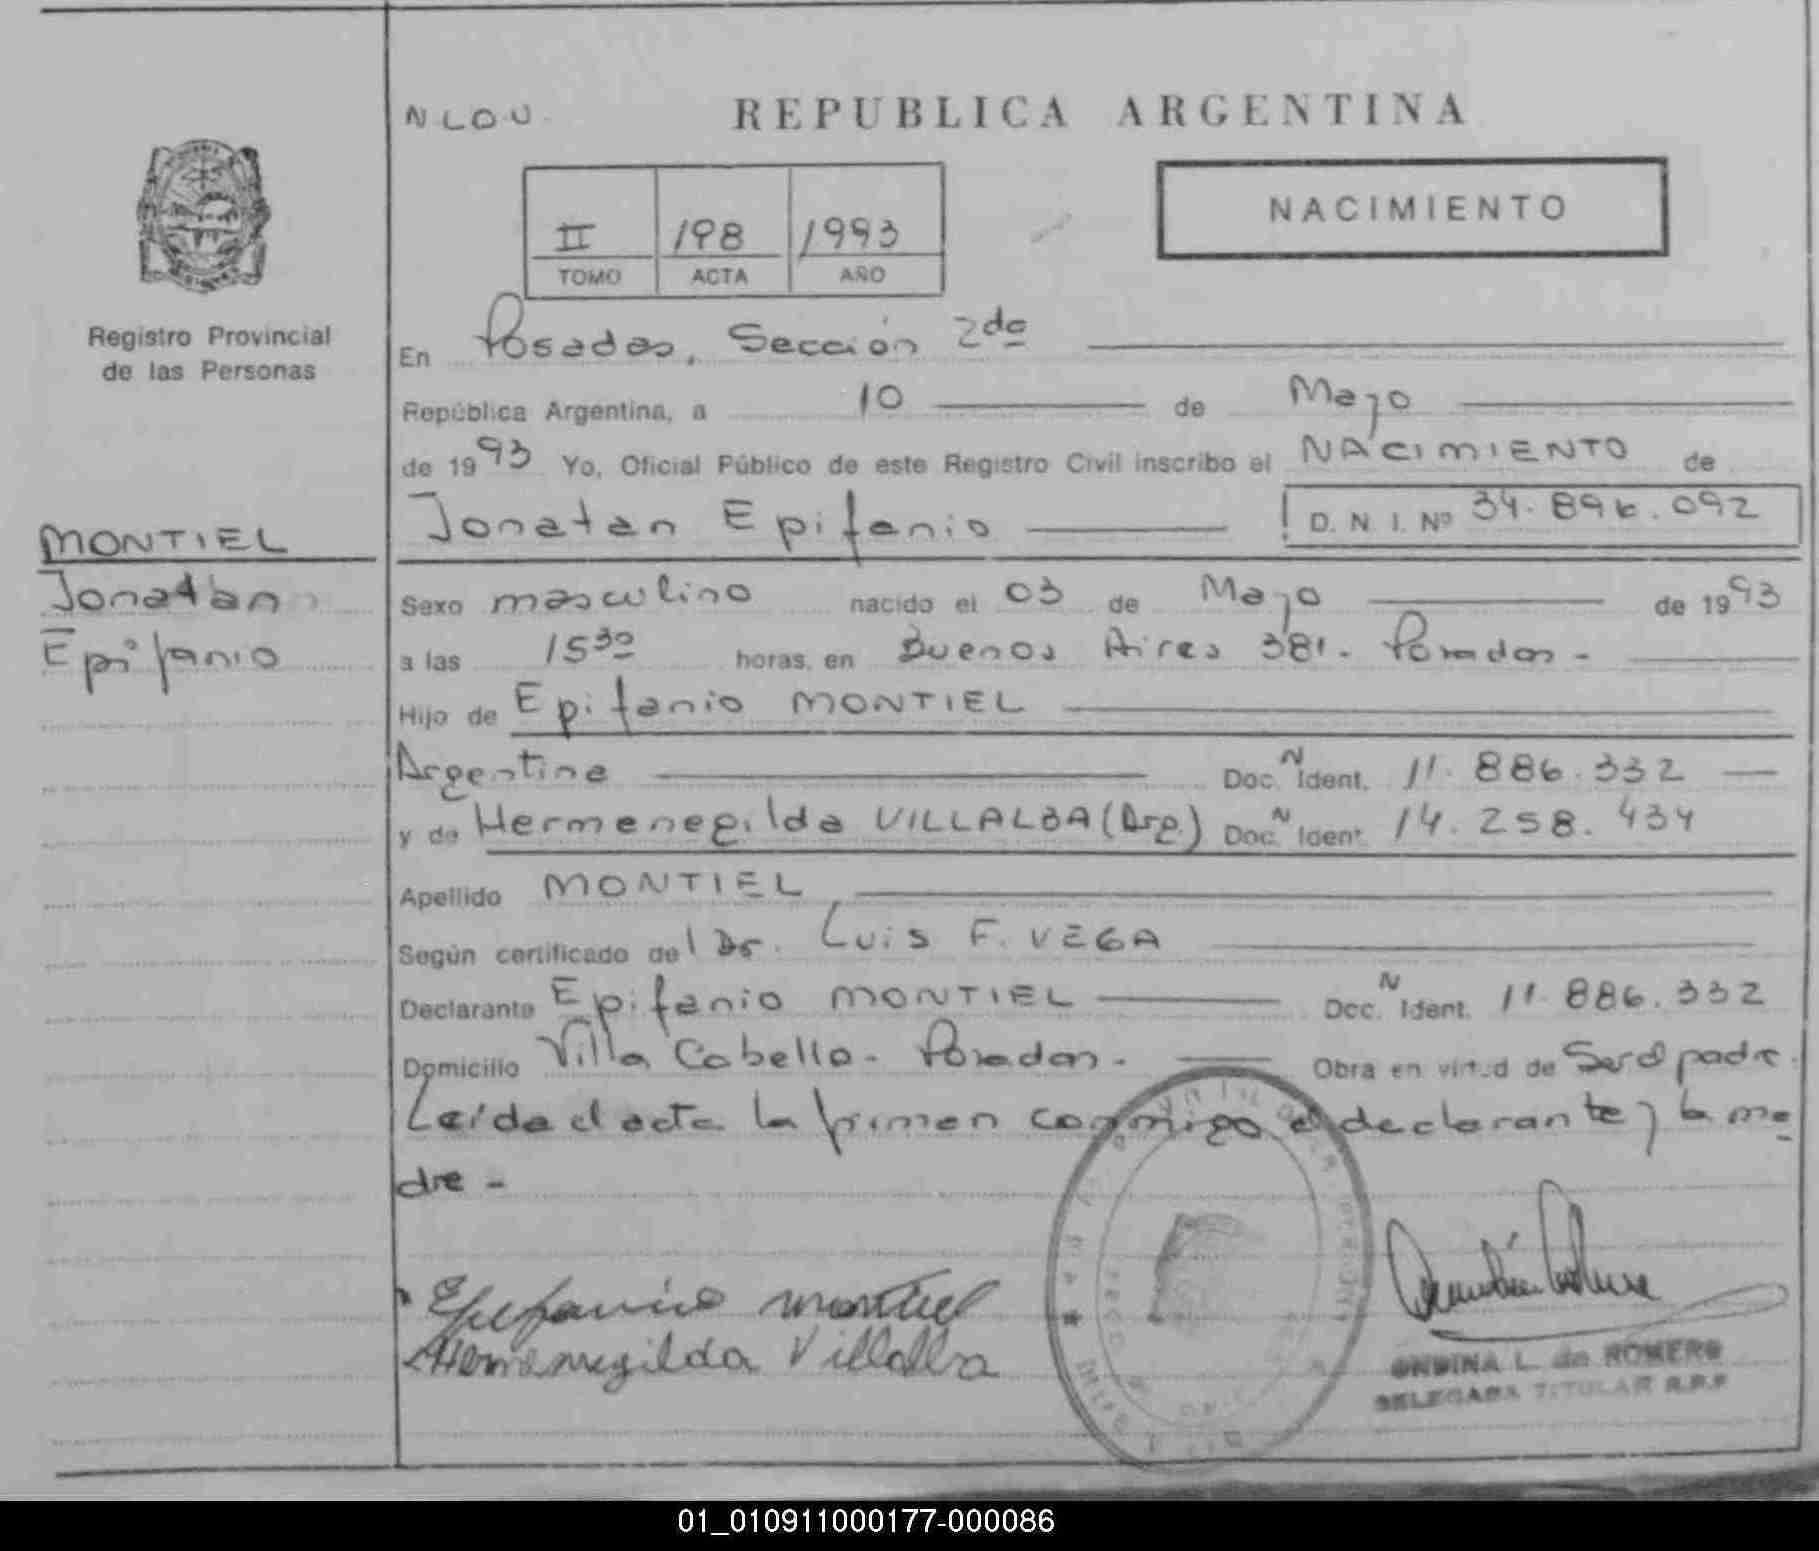 N L O U.
REPUBLICA ARGENTINA
II 198 1993
TOMO ACTA AÑO
NACIMIENTO
Registro Provincial
de las Personas
MONTIEL
Jonatan
Epifanio
En Posadas, Sección 2da
República Argentina, a 10 de Mayo
de 1993 Yo, Oficial Público de este Registro Civil inscribo el NACIMIENTO de
Jonatan Epifanio D. N. I. Nº 34.896.092
Sexo masculino nacido el 03 de Mayo de 1993
a las 15 30 horas, en Buenos Aires 381. Posadas -
Hijo de Epifanio MONTIEL
Argentina Doc. N Ident. 11.886.332
y de Hermenegilda VILLALBA (Arg.) Doc. N Ident. 14.258.434
Apellido MONTIEL
Según certificado del Dr. Luis F. VEGA
Declarante Epifanio MONTIEL Doc. N Ident. 11.886.332
Domicilio Villa Cabello - Posadas - Obra en virtud de Ser el padre.
Leída el acta la firman conmigo el declarante y la ma
dre -
Epifanio montiel
Hermenegilda Villalba
ONDINA L. de ROMERO
DELEGADA TITULAR R.P.P
01_010911000177-000086